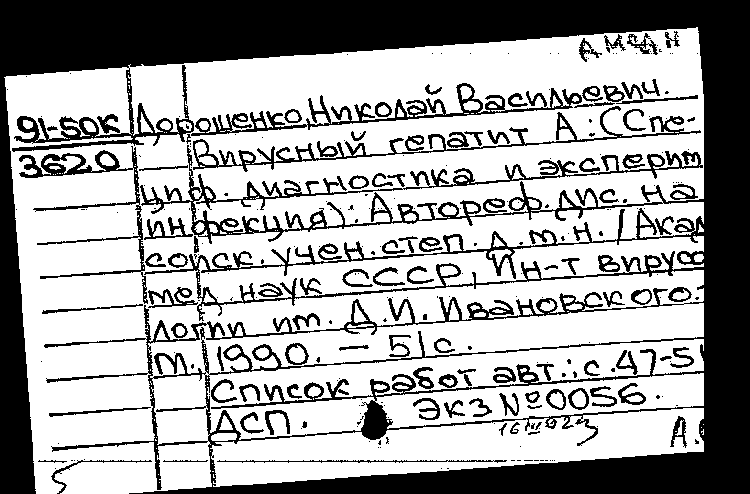 А МЕД Н
91-50К Дорошенко, Николай Васильевич.
3620 Вирусный гепатит А: (Спе-
циф. диагностика и эксперим
инфекция): Автореф. дис. на
соиск. учен. степ. д.м.н. / Акад
мед. наук СССР, Ин-т вирусо
логии им. Д.И. Ивановского.-
М., 1990. — 51 с.
Список работ авт.: с. 47-51
ДСП. Экз №0056.
5